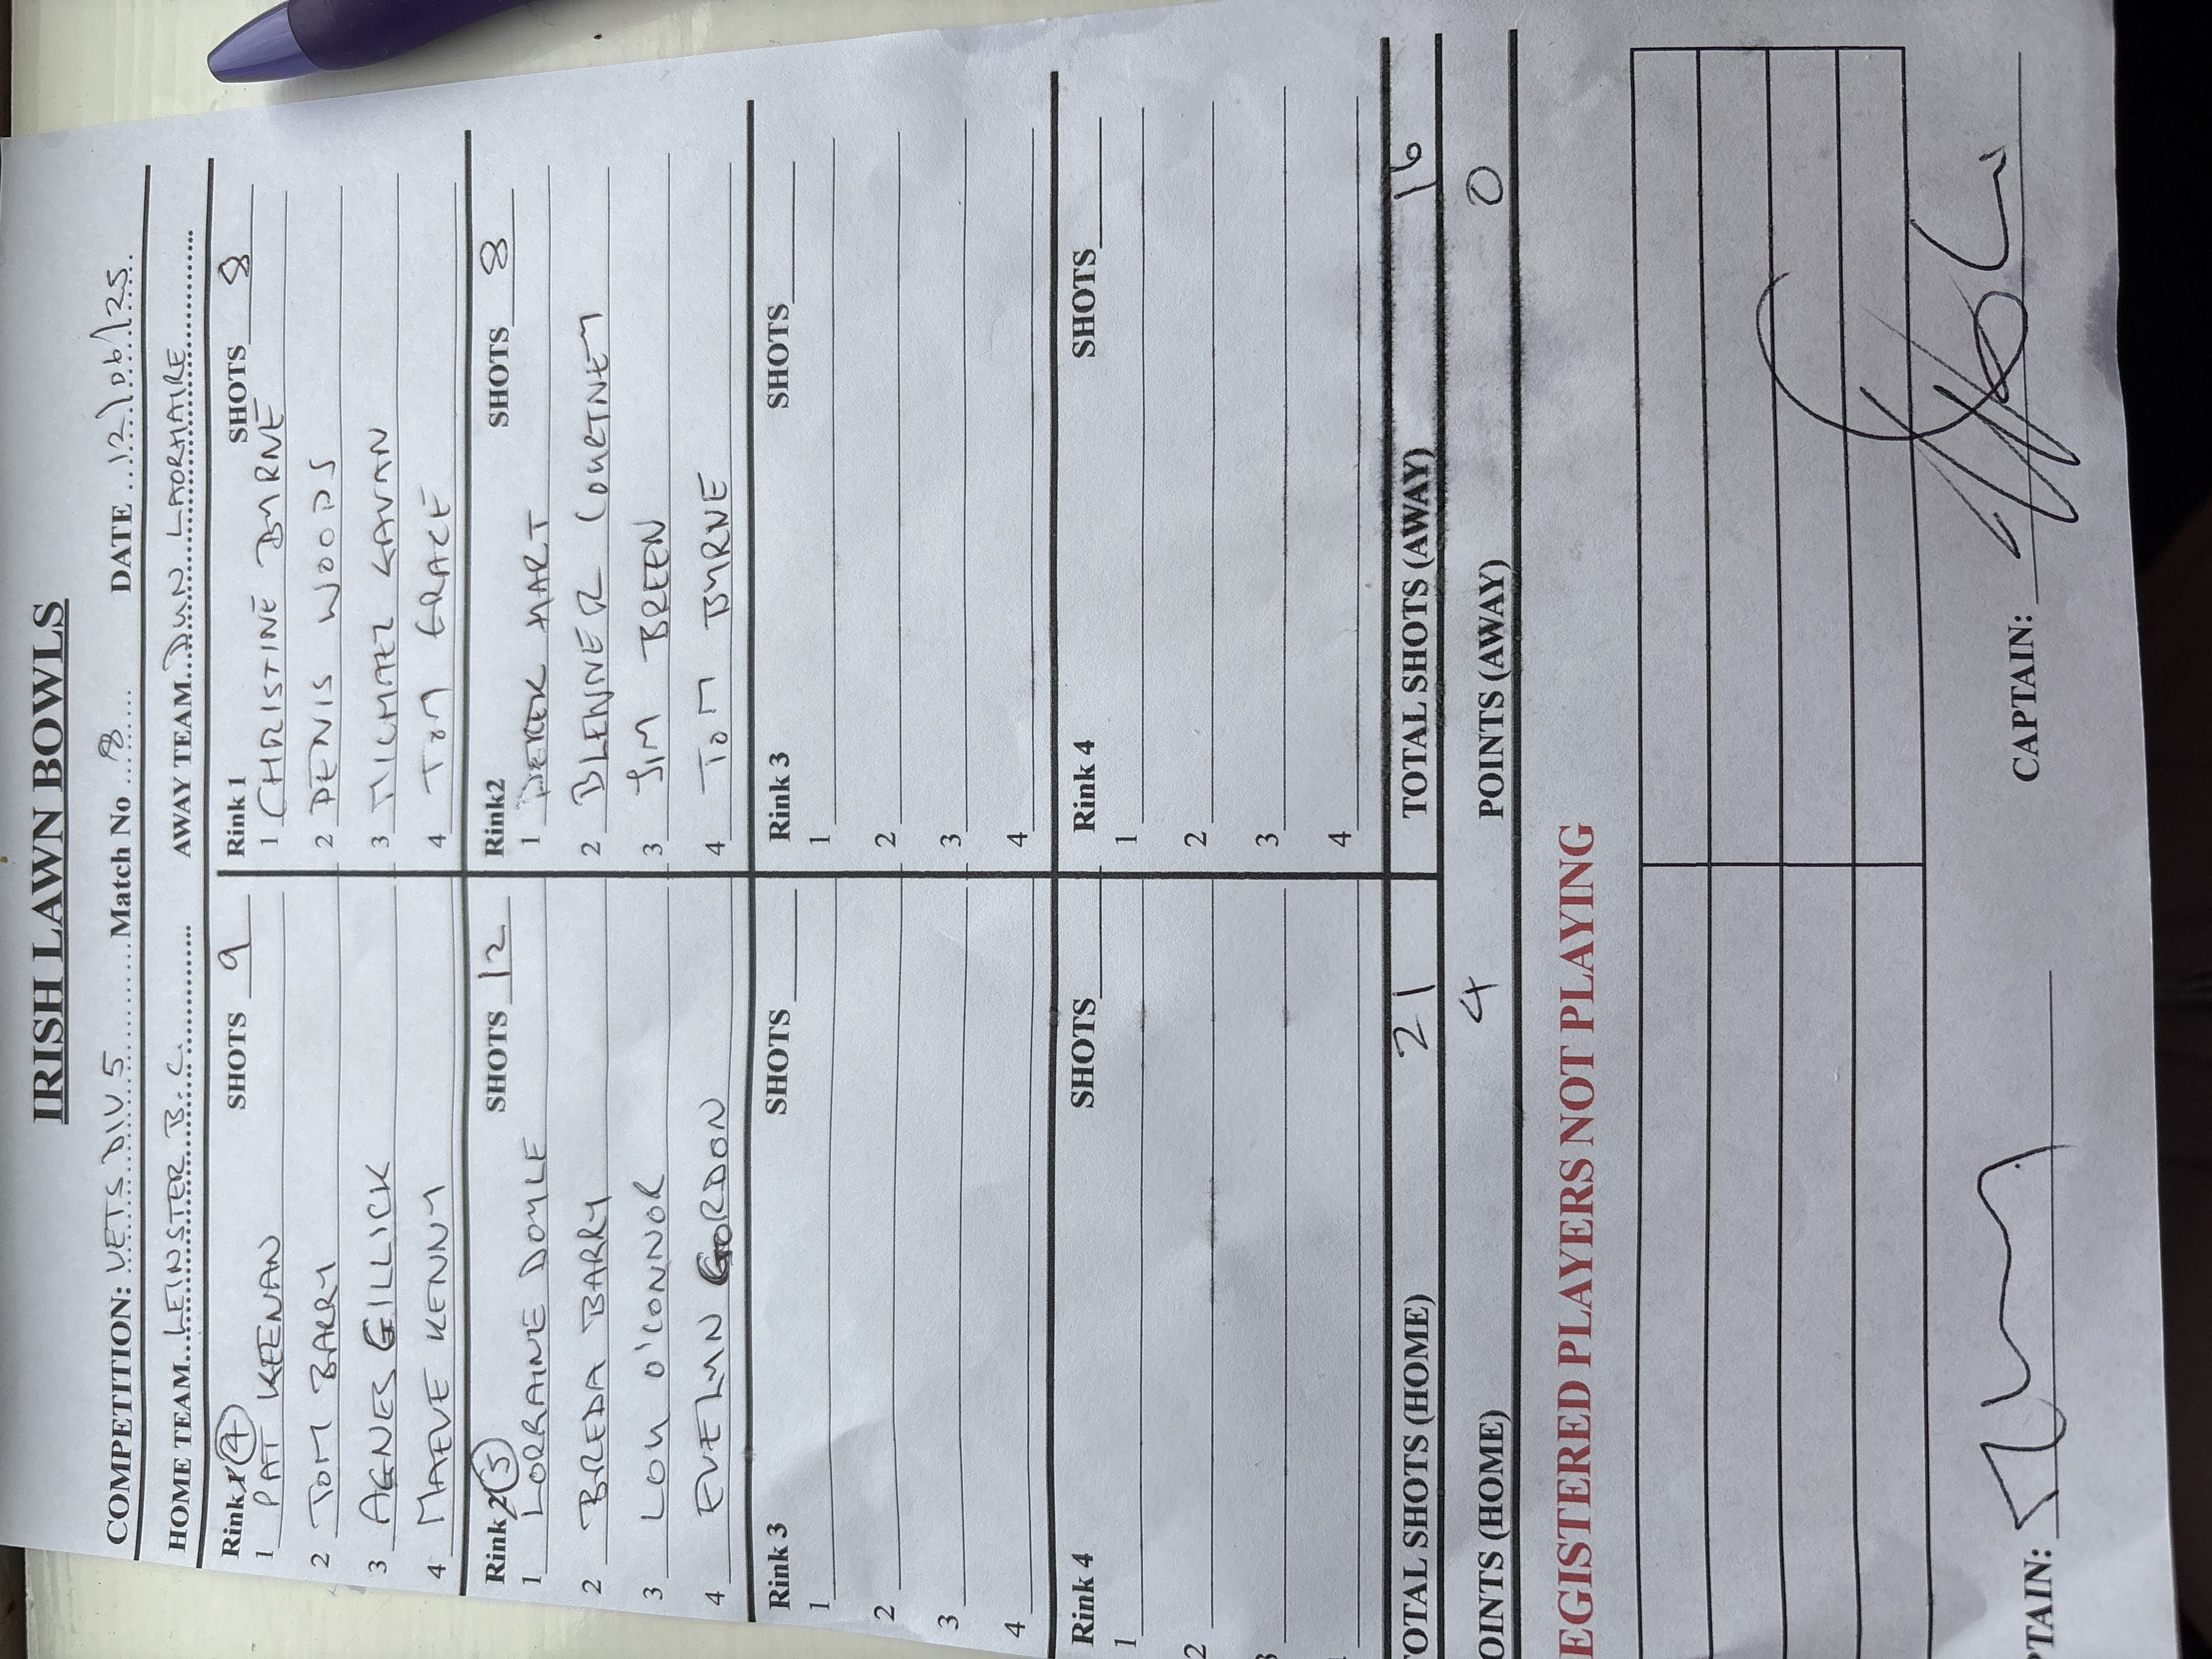 IRISH LAWN BOWLS
COMPETITION: VETS DIV 5 Match No 8 DATE 12/06/25
HOME TEAM LEINSTER B.C. AWAY TEAM DUN LAOGHAIRE
Rink 1 (4) SHOTS 9
1 PAT KEENAN
2 TOM BARRY
3 AGNES GILLICK
4 MAEVE KENNY
Rink 1 SHOTS 8
1 CHRISTINE BYRNE
2 DENIS WOODS
3 MICHAEL GAVAN
4 TOM GRACE
Rink 2 (5) SHOTS 12
1 LORRAINE DOYLE
2 BREDA BARRY
3 LOU O'CONNOR
4 EVELYN GORDON
Rink2 SHOTS 8
1 DEREK HART
2 BLENNER COURTNEY
3 JIM BREEN
4 TOM BYRNE
Rink 3 SHOTS
1
2
3
4
Rink 3 SHOTS
1
2
3
4
Rink 4 SHOTS
1
2
3
Rink 4 SHOTS
1
2
3
4
TOTAL SHOTS (HOME) 21 TOTAL SHOTS (AWAY) 16
POINTS (HOME) 4 POINTS (AWAY) 0
REGISTERED PLAYERS NOT PLAYING
CAPTAIN: CAPTAIN: